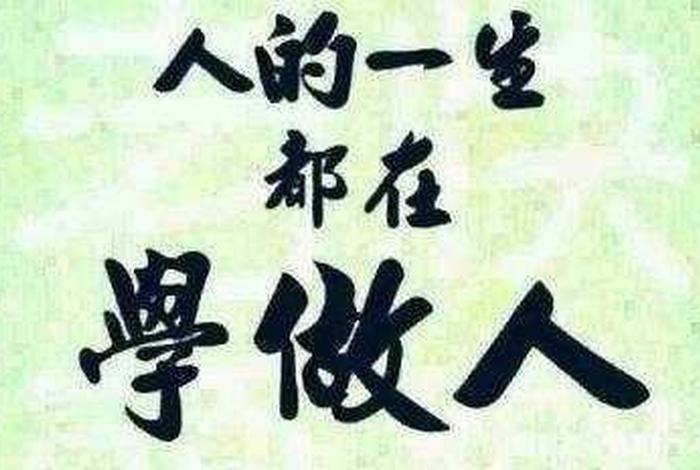 人的一生
都在
學做人